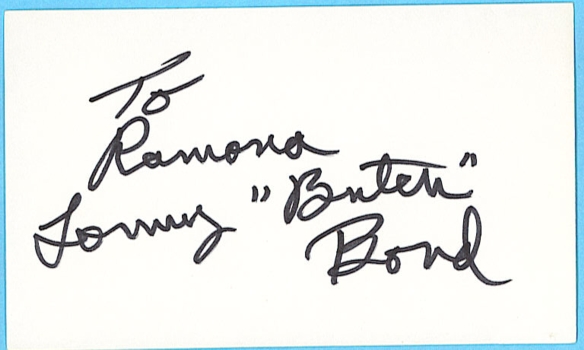 To
Ramona
Tommy "Butch"
Bond